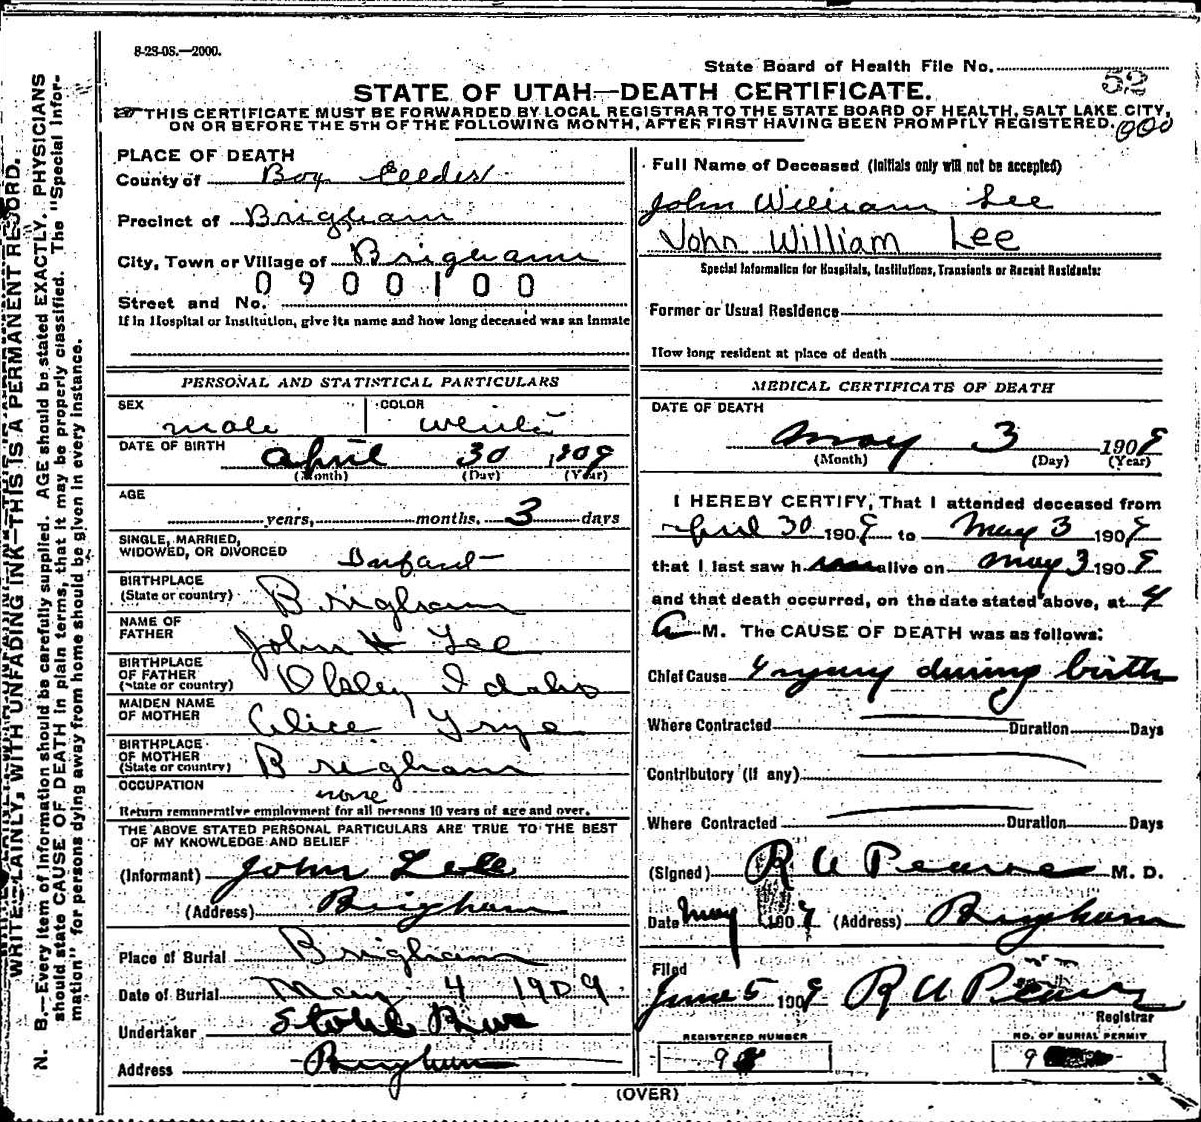 8-23-08.—2000.
State Board of Health File No.
52
STATE OF UTAH—DEATH CERTIFICATE.
THIS CERTIFICATE MUST BE FORWARDED BY LOCAL REGISTRAR TO THE STATE BOARD OF HEALTH, SALT LAKE CITY,
ON OR BEFORE THE 5TH OF THE FOLLOWING MONTH, AFTER FIRST HAVING BEEN PROMPTLY REGISTERED.
000
WRITE PLAINLY, WITH UNFADING INK—THIS IS A PERMANENT RECORD.
N. B.—Every item of information should be carefully supplied. AGE should be stated EXACTLY. PHYSICIANS
should state CAUSE OF DEATH in plain terms, that it may be properly classified. The "Special Infor-
mation" for persons dying away from home should be given in every instance.
PLACE OF DEATH
County of Box Elder
Precinct of Brigham
City, Town or Village of Brigham
0900100
Street and No.
If in Hospital or Institution, give its name and how long deceased was an inmate
PERSONAL AND STATISTICAL PARTICULARS
SEX male COLOR white
DATE OF BIRTH April 30 1909
(Month) (Day) (Year)
AGE years, months, 3 days
SINGLE, MARRIED,
WIDOWED, OR DIVORCED Infant
BIRTHPLACE
(State or country) Brigham
NAME OF
FATHER John H Lee
BIRTHPLACE
OF FATHER
(State or country) Idaho
MAIDEN NAME
OF MOTHER Alice
BIRTHPLACE
OF MOTHER
(State or country) Brigham
OCCUPATION none
Return remunerative employment for all persons 10 years of age and over.
THE ABOVE STATED PERSONAL PARTICULARS ARE TRUE TO THE BEST
OF MY KNOWLEDGE AND BELIEF
(Informant) John Lee
(Address) Brigham
Place of Burial Brigham
Date of Burial May 4 1909
Undertaker Stohl
Address Brigham
Full Name of Deceased (Initials only will not be accepted)
John William Lee
John William Lee
Special Information for Hospitals, Institutions, Transients or Recent Residents:
Former or Usual Residence
How long resident at place of death
MEDICAL CERTIFICATE OF DEATH
DATE OF DEATH
May 3 1909
(Month) (Day) (Year)
I HEREBY CERTIFY, That I attended deceased from
April 30 1909 to May 3 1909
that I last saw h alive on May 3 1909
and that death occurred, on the date stated above, at 4
A M. The CAUSE OF DEATH was as follows:
Chief Cause Injury during birth
Where Contracted Duration Days
Contributory (if any)
Where Contracted Duration Days
(Signed) R A Pearse M. D.
Date May 1909 (Address) Brigham
Filed
June 5 1909 R A Pearse
Registrar
REGISTERED NUMBER
9
NO. OF BURIAL PERMIT
9
(OVER)